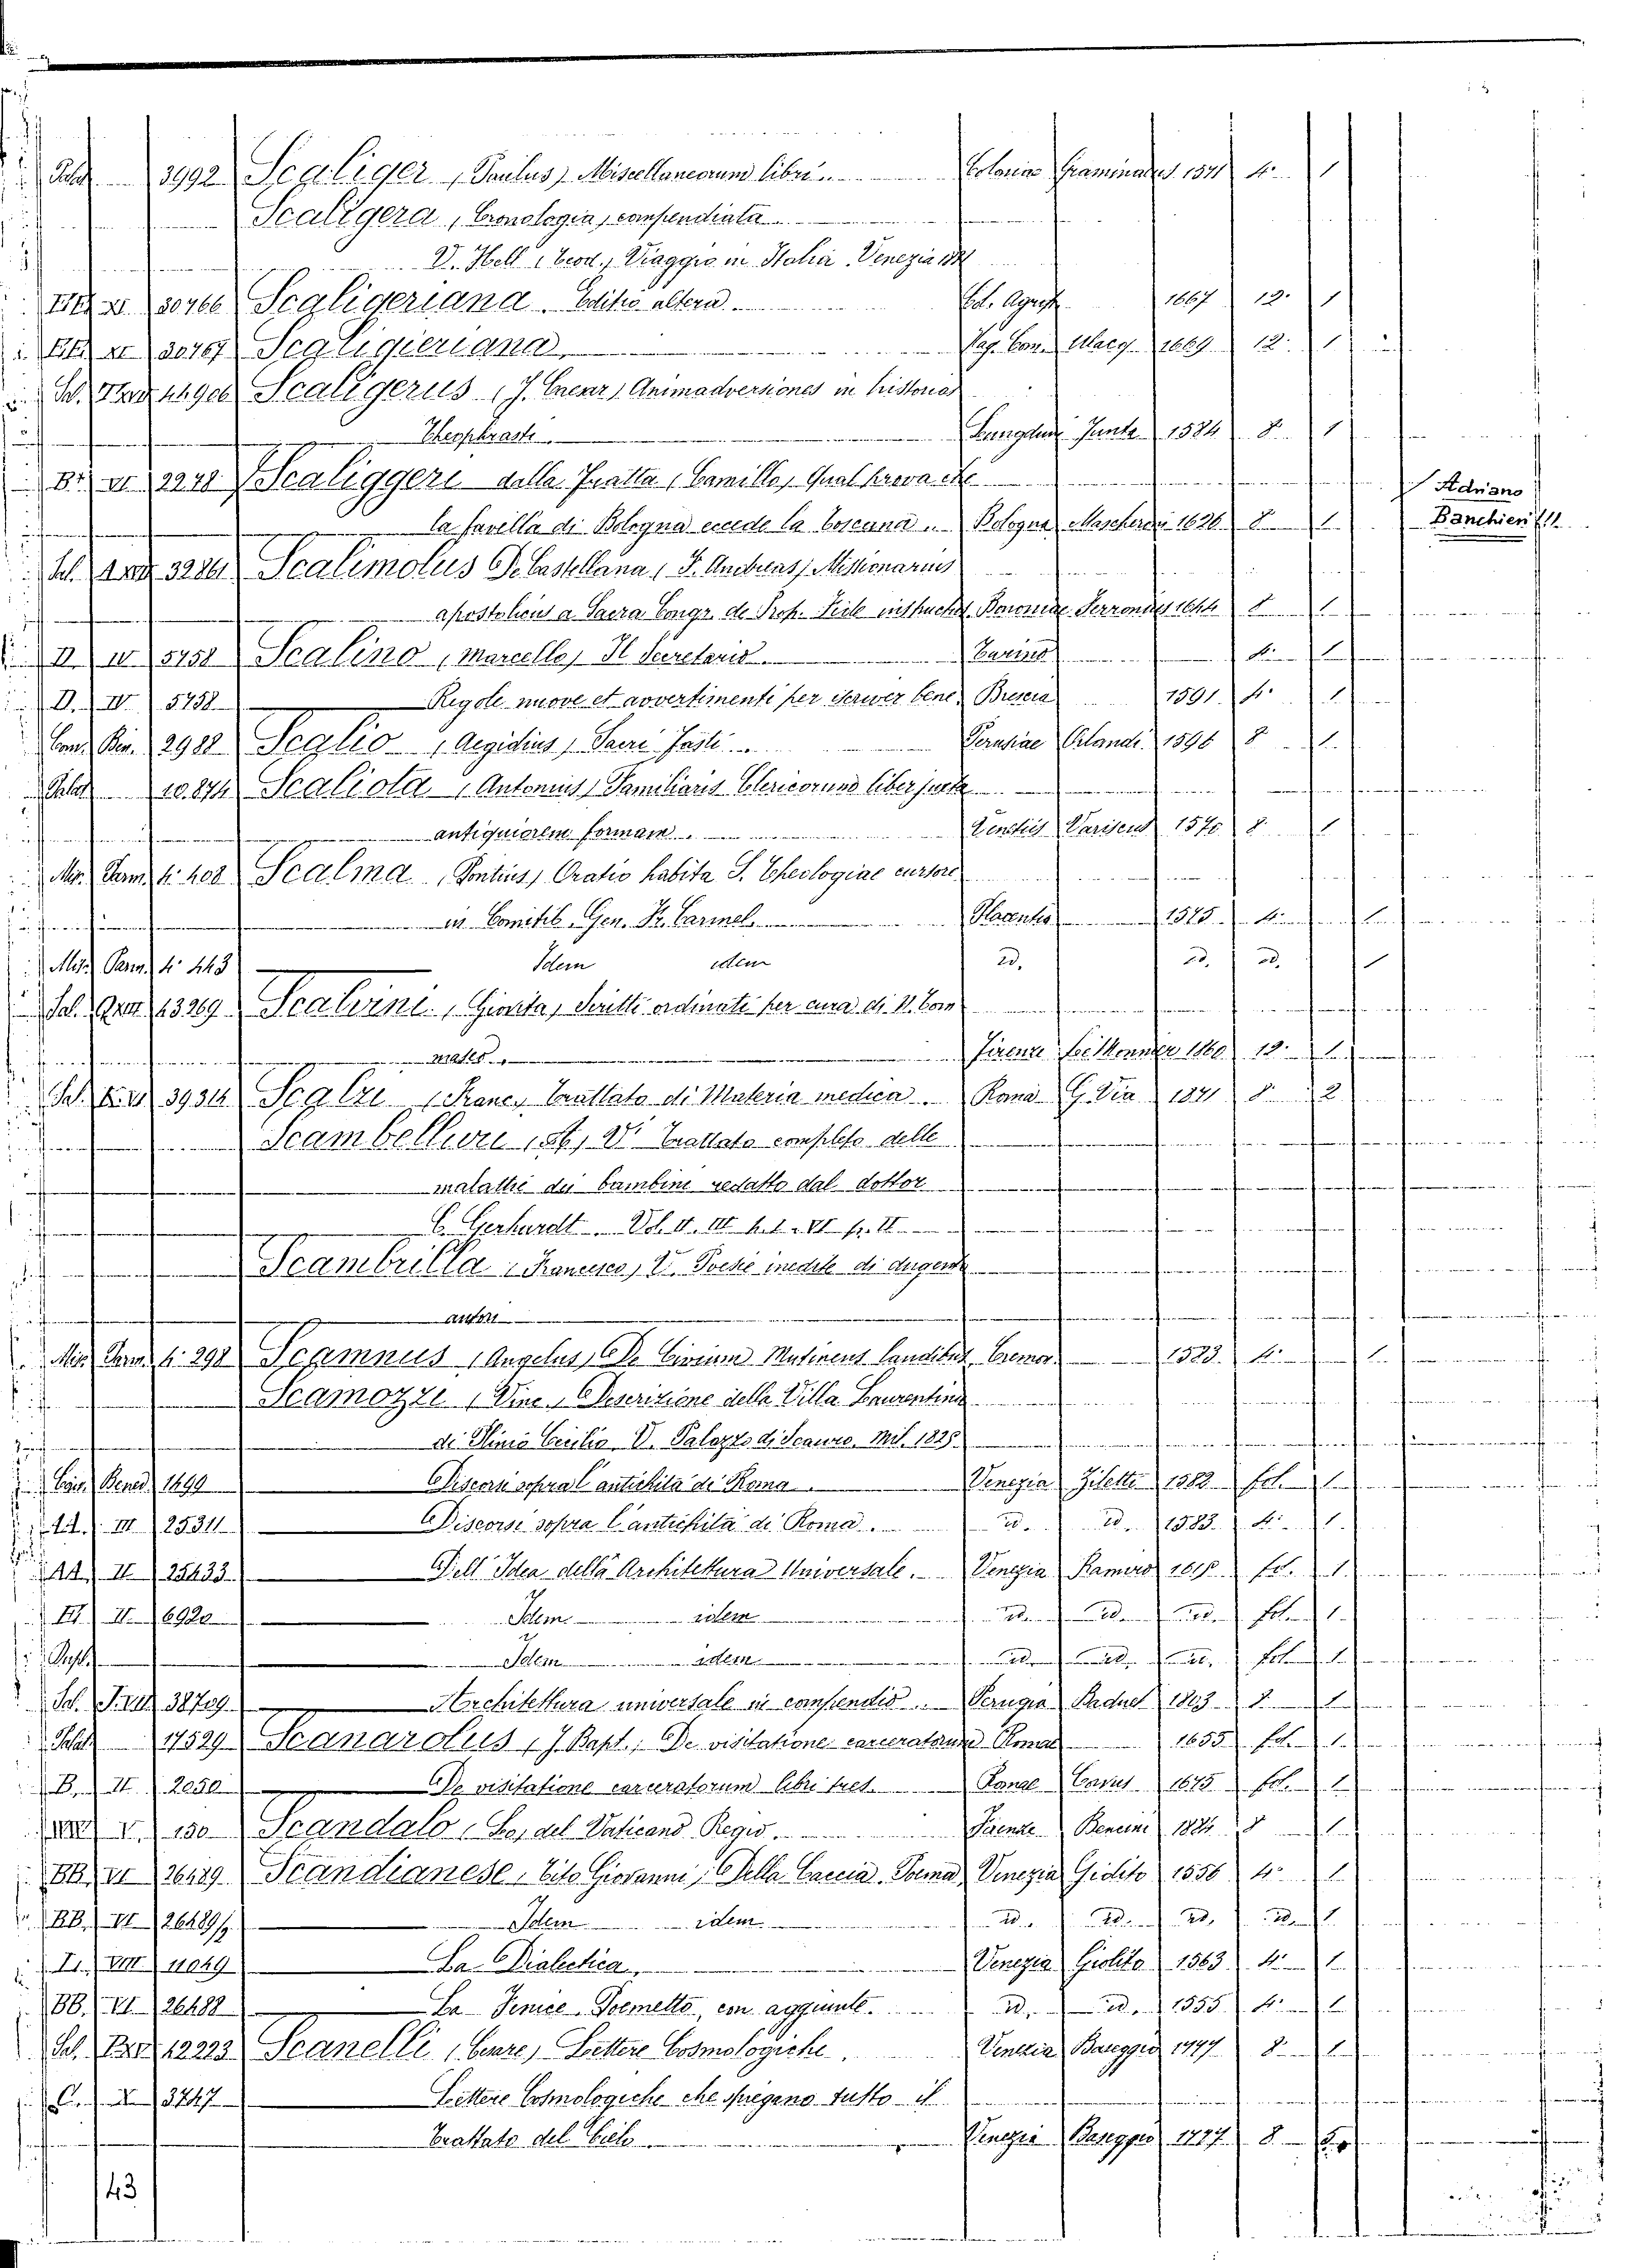 Palat 3992 Scaliger (Paulus) Miscellaneorum libri Coloniae Graminaeus 1571 4. 1
Scaligera (Cronologia) compendiata
V. Hell (Teod.) Viaggio in Italia Venezia 1841
VI 30466 Scaligeriana. Editio altera Col. Agripp. 1667 12. 1
VI 30467 Scaligieriana Hag. Com. Ulacq 1669 12. 1
Scaligerus (J. Caesar) Animadversiones in historias
Theophrasti Lungduni Junta 1584 8. 1
VI Scaliggeri della Fratta (Camillo) Qual prova che
la favella di Bologna eccede la Toscana Bologna Mascheroni 1626 8 1
Adriano
Banchieri !!!
Scalimolus De Castellana (F. Andreas) Missionarius
apostolicus a Sacra Congr. de Prop. Fide instructus Bononiae Ferronius 1644 8 1
D. IV 5758 Scalino (Marcello) Il Secretario Torino 4. 1
D. IV 5758 Regole nuove et avvertimenti per scriver bene Brescia 1591 4. 1
Con. Ben. 2988 Scalio (Aegidius) Sacri Fasti Perusiae Orlandi 1596 8 1
Palat 10.874 Scaliota (Antonius) Familiaris Clericorum liber juxta
antiquiorem formam Venetiis Variscus 1570 8 1
Mis. Parm. 4° 408 Scalma (Pontius) Oratio habita S. Theologiae cursore
in Comitib. Gen. Fr. Carmel. Placentia 1575 4. 1
Mis. Parm. 4° 443 Idem idem id. id. id. 1
Scalvini (Giovita) Scritti ordinati per cura di N. Tom
maseo Firenze Le Monnier 1860 12. 1
Scalzi (Franc.) Trattato di Materia medica Roma G. Via 1871 8 2
Scambelluri (A.) V. Trattato completo delle
malattie dei bambini redatto dal dottor
C. Gerhardt. Vol. II. III p. I. VI p. II
Scambrilla (Francesco) V. Poesie inedite di dugento
autori
Mis. Parm. 4. 298 Scamnus (Angelus) De Civium Mutinens laudibus Cremon. 1523. 4. 1
Scamozzi (Vinc.) Descrizione della Villa Laurentina
di Plinio Cecilio V. Palazzo di Scauro. Mil. 1825.
Con. Bened. 1499 Discorsi sopra l'antichità di Roma Venezia Ziletti 1582 fol. 1
III 25311 Discorsi sopra l'antichità di Roma id. id. 1583 4. 1
AA II 25433 Dell' Idea della Architettura Universale. Venezia fol. 1
II 6920 Idem idem id. id. id. fol. 1
Idem idem id. id. id. fol. 1
38709 Architettura universale in compendio Perugia Baduel 1803 8 1
Palat 17529 Scanarolus (J. Bapt.) De visitatione carceratorum Romae 1655 fol. 1
B. II 2050 De visitatione carceratorum libri tres Romae 1675 fol. 1
V. 130 Scandalo (Lo) del Vaticano Regio Firenze Bencini 1884 8 1
BB VI 26489 Scandianese (Tito Giovanni) Della Caccia. Poema Venezia Giolito 1556 4. 1
BB. VI 26489/2 Idem idem id. id. id. id. 1
VIII 11049 La Dialectica Venezia Giolito 1563 4. 1
BB. VI 26488 La Fenice Poemetto, con aggiunte id. id. 1555 4. 1
Scanelli (Cesare) Lettere Cosmologiche Venezia Baseggio 1797 8 1
C. X 3747 Lettere Cosmologiche che spiegano tutto il
Trattato del Cielo Venezia Baseggio 1797 8
43